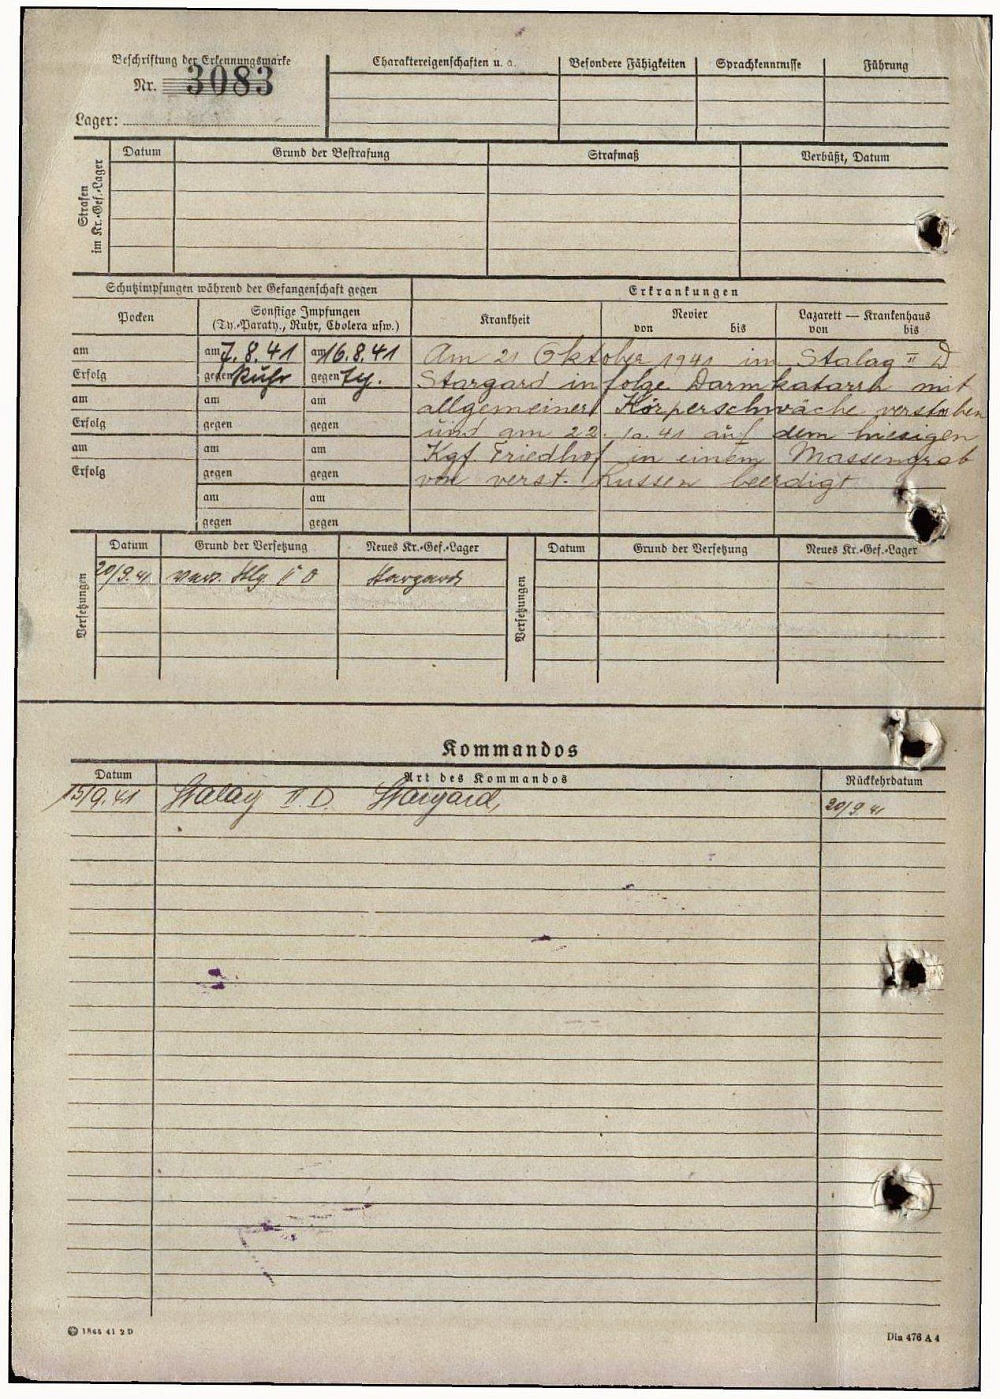 Beschriftung der Erkennungsmarke
Nr. 3083
Lager:
Charaktereigenschaften u. a.
Besondere Fähigkeiten
Sprachkenntnisse
Führung
Strafen im Kr.-Gef.-Lager
Datum
Grund der Bestrafung
Strafmaß
Verbüßt, Datum
Schutzimpfungen während der Gefangenschaft gegen
Erkrankungen
Pocken
Sonstige Impfungen
(Ty.-Paraty., Ruhr, Cholera usw.)
Krankheit
Revier
von bis
Lazarett — Krankenhaus
von bis
am am 7.8.41 am 16.8.41
Erfolg gegen Ruhr gegen Ty.
am am am
Erfolg gegen gegen
am am am
Erfolg gegen gegen
am am
gegen gegen
Am 21 Oktober 1941 im Stalag II D
Stargard infolge Darmkatarrh mit
allgemeiner Körperschwäche verstorben
und am 22. 10. 41 auf dem hiesigen
Kgf Friedhof in einem Massengrab
von verst. Russen beerdigt
Versetzungen
Datum
Grund der Versetzung
Neues Kr.-Gef.-Lager
20/9.41 Stargard
Versetzungen
Datum
Grund der Versetzung
Neues Kr.-Gef.-Lager
Kommandos
Datum
Art des Kommandos
Rückkehrdatum
15/9.41 Stalag II. D. Stargard, 20/9 41
1865 41 2 D
Din 476 A 4